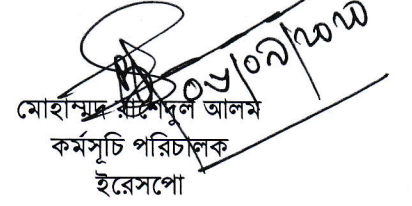 ০৮/০৯/২০২০
মোহাম্মদ রাশেদুল আলম
কর্মসূচি পরিচালক
ইরেসপো